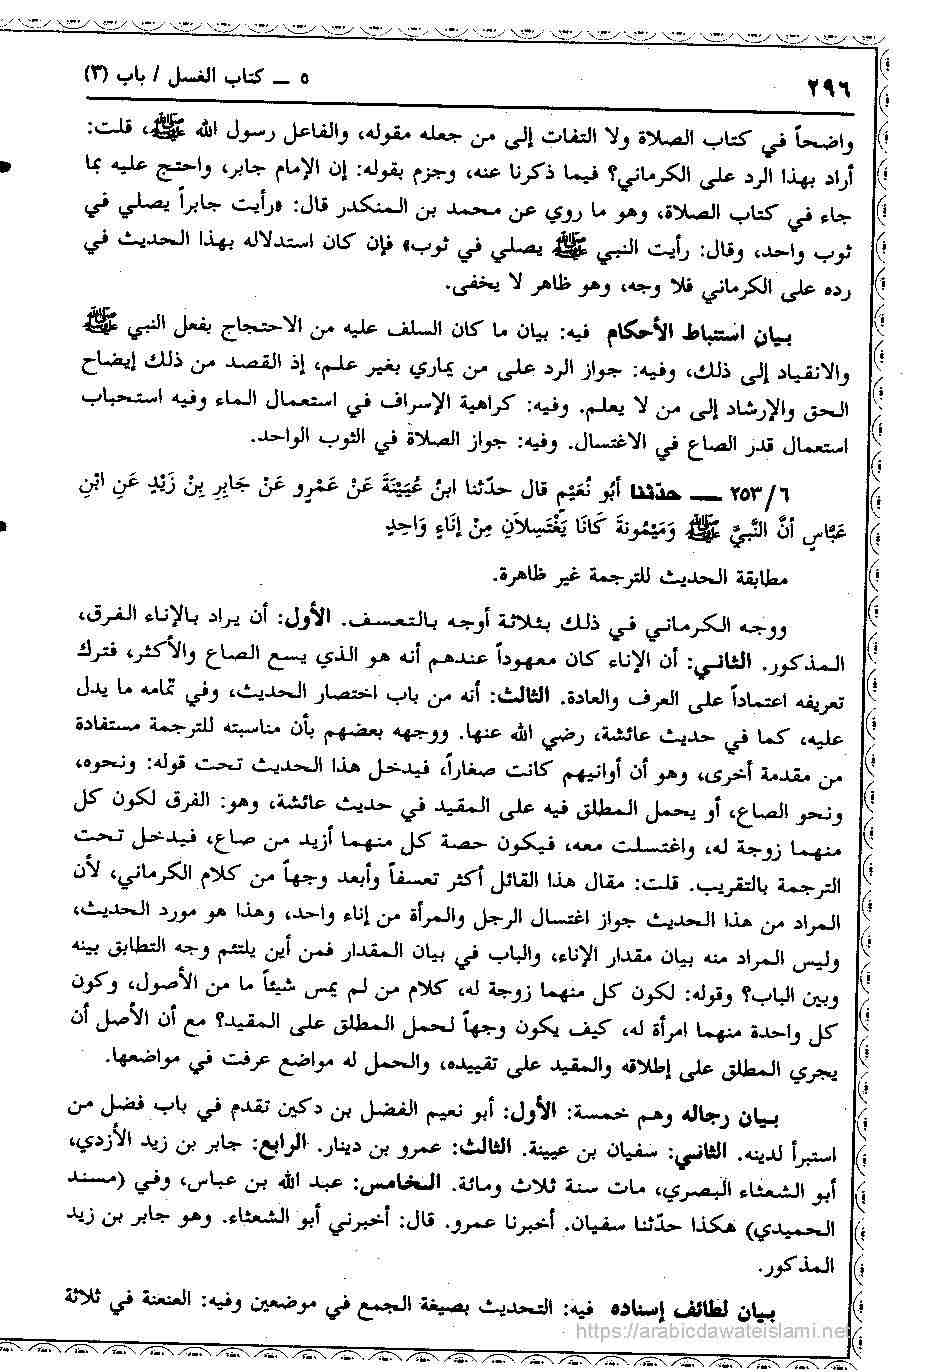 ٢٩٦
٥ ــ كتاب الغسل / باب (٣)
واضحاً في كتاب الصلاة ولا التفات إلى من جعله مقوله، والفاعل رسول الله ﷺ، قلت:
أراد بهذا الرد على الكرماني؟ فيما ذكرنا عنه، وجزم بقوله: إن الإمام جابر، واحتج عليه بما
جاء في كتاب الصلاة، وهو ما روي عن محمد بن المنكدر قال: «رأيت جابراً يصلي في
ثوب واحد، وقال: رأيت النبي ﷺ يصلي في ثوب» فإن كان استدلاله بهذا الحديث في
رده على الكرماني فلا وجه، وهو ظاهر لا يخفى.
بيان استنباط الأحكام فيه: بيان ما كان السلف عليه من الاحتجاج بفعل النبي ﷺ
والانقياد إلى ذلك، وفيه: جواز الرد على من يماري بغير علم، إذ القصد من ذلك إيضاح
الحق والإرشاد إلى من لا يعلم. وفيه: كراهية الإسراف في استعمال الماء وفيه استحباب
استعمال قدر الصاع في الاغتسال. وفيه: جواز الصلاة في الثوب الواحد.
٢٥٣/٦ ــ حدّثنا أَبُو نُعَيْمٍ قال حدّثنا ابنُ عُيَيْنَةَ عَنْ عَمْرٍو عَنْ جَابِرِ بِنْ زَيْدٍ عَنِ ابْنِ
عَبَّاسٍ أنَّ النَّبيَّ ﷺ وَمَيْمُونةَ كَانَا يَغْتَسِلاَنِ مِنْ إنَاءٍ وَاحِدٍ
مطابقة الحديث للترجمة غير ظاهرة.
ووجه الكرماني في ذلك بثلاثة أوجه بالتعسف. الأول: أن يراد بالإناء الفرق،
المذكور. الثاني: أن الإناء كان معهوداً عندهم أنه هو الذي يسع الصاع والأكثر، فترك
تعريفه اعتماداً على العرف والعادة. الثالث: أنه من باب اختصار الحديث، وفي تمامه ما يدل
عليه، كما في حديث عائشة، رضي الله عنها. ووجهه بعضهم بأن مناسبته للترجمة مستفادة
من مقدمة أخرى، وهو أن أوانيهم كانت صغاراً، فيدخل هذا الحديث تحت قوله: ونحوه،
ونحو الصاع، أو يحمل المطلق فيه على المقيد في حديث عائشة، وهو: الفرق لكون كل
منهما زوجة له، واغتسلت معه، فيكون حصة كل منهما أزيد من صاع، فيدخل تحت
الترجمة بالتقريب. قلت: مقال هذا القائل أكثر تعسفاً وأبعد وجهاً من كلام الكرماني، لأن
المراد من هذا الحديث جواز اغتسال الرجل والمرأة من إناء واحد، وهذا هو مورد الحديث،
وليس المراد منه بيان مقدار الإناء، والباب في بيان المقدار فمن أين يلتئم وجه التطابق بينه
وبين الباب؟ وقوله: لكون كل منهما زوجة له، كلام من لم يمس شيئاً ما من الأصول، وكون
كل واحدة منهما امرأة له، كيف يكون وجهاً لحمل المطلق على المقيد؟ مع أن الأصل أن
يجري المطلق على إطلاقه والمقيد على تقييده، والحمل له مواضع عرفت في مواضعها.
بيان رجاله وهم خمسة: الأول: أبو نعيم الفضل بن دكين تقدم في باب فضل من
استبرأ لدينه. الثاني: سفيان بن عيينة. الثالث: عمرو بن دينار. الرابع: جابر بن زيد الأزدي،
أبو الشعثاء البصري، مات سنة ثلاث ومائة. الخامس: عبد الله بن عباس، وفي (مسند
الحميدي) هكذا حدّثنا سفيان. أخبرنا عمرو. قال: أخبرني أبو الشعثاء. وهو جابر بن زيد
المذكور.
بيان لطائف إسناده فيه: التحديث بصيغة الجمع في موضعين وفيه: العنعنة في ثلاثة
https://arabicdawateislami.net